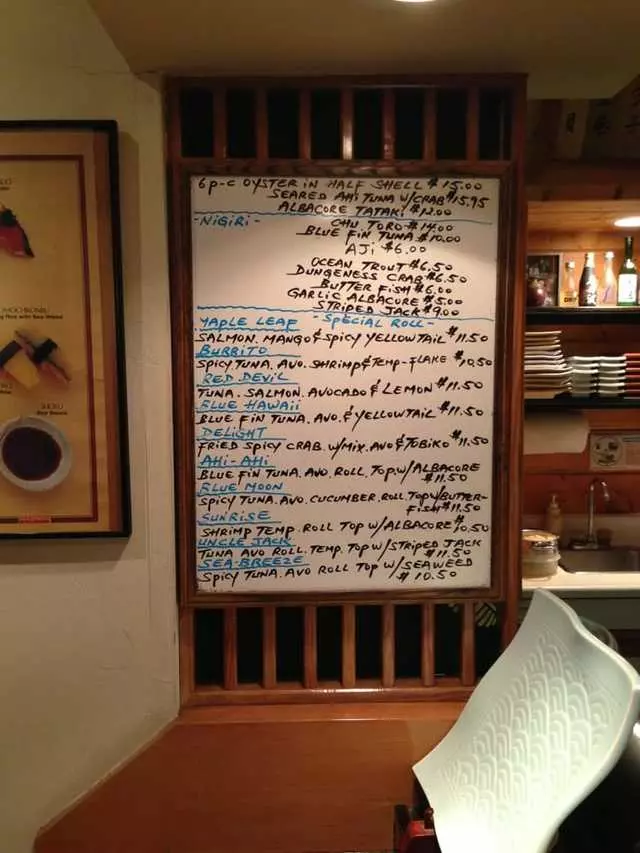 6p-c OYSTER IN HALF SHELL $15.00
SEARED AHI TUNA W/CRAB $15.95
ALBACORE TATAKI $12.00
-NIGIRI-
CHU TORO $14.00
BLUE FIN TUNA $10.00
AJI $6.00
OCEAN TROUT $6.50
DUNGENESS CRAB $6.50
BUTTER FISH $6.00
GARLIC ALBACORE $5.00
STRIPED JACK $9.00
-SPECIAL ROLL-
MAPLE LEAF
SALMON. MANGO & SPICY YELLOWTAIL $11.50
BURRITO
SPICY TUNA. AVO. SHRIMP & TEMP-FLAKE $10.50
RED DEVIL
TUNA. SALMON. AVOCADO & LEMON $11.50
BLUE HAWAII
BLUE FIN TUNA. AVO. & YELLOWTAIL $11.50
DELIGHT
FRIED SPICY CRAB. W/MIX. AVO & TOBIKO $11.50
AHI-AHI
BLUE FIN TUNA. AVO. ROLL. TOP W/ALBACORE
$11.50
BLUE MOON
SPICY TUNA. AVO. CUCUMBER. ROLL. TOP W/BUTTER-
FISH $11.50
SUNRISE
SHRIMP TEMP. ROLL TOP W/ALBACORE $10.50
UNCLE JACK
TUNA AVO ROLL. TEMP. TOP W/STRIPED JACK
$11.50
SEA-BREEZE
SPICY TUNA. AVO ROLL TOP W/SEAWEED
$10.50